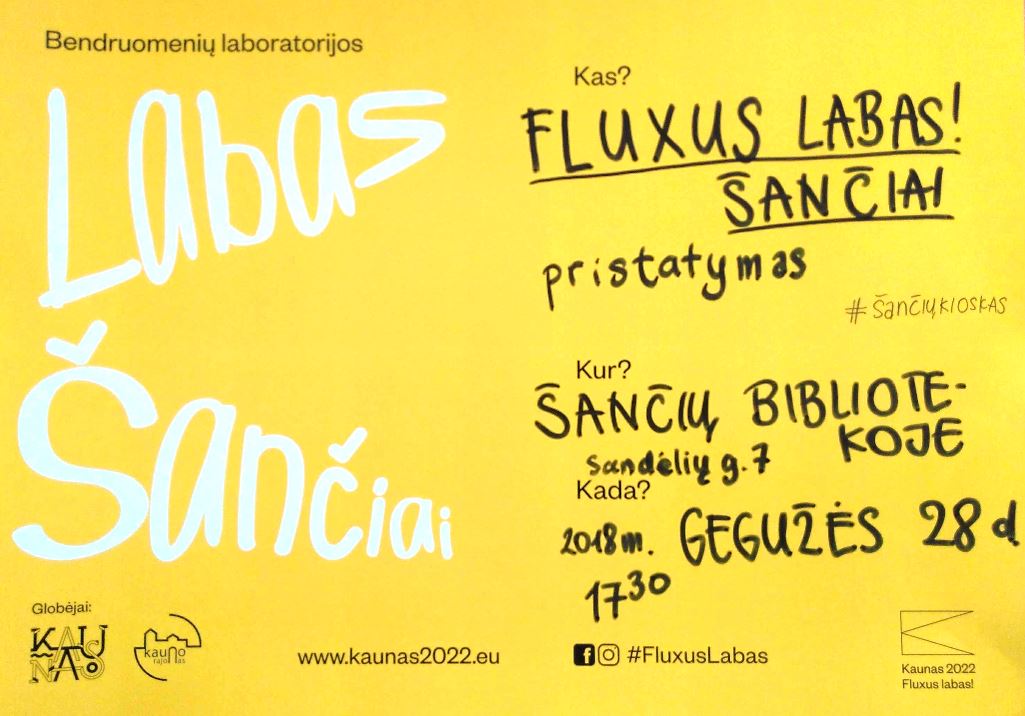 Bendruomenių laboratorijos
Labas
Šančiai
Kas?
FLUXUS LABAS!
ŠANČIAI
pristatymas
#ŠANČIŲKIOSKAS
Kur?
ŠANČIŲ BIBLIOTE-
KOJE
sandėlių g. 7
Kada?
2018 m. GEGUŽĖS 28 d.
17 30
Globėjai:
KAUNAS
kauno
rajonas
www.kaunas2022.eu
#FluxusLabas
Kaunas 2022
Fluxus labas!